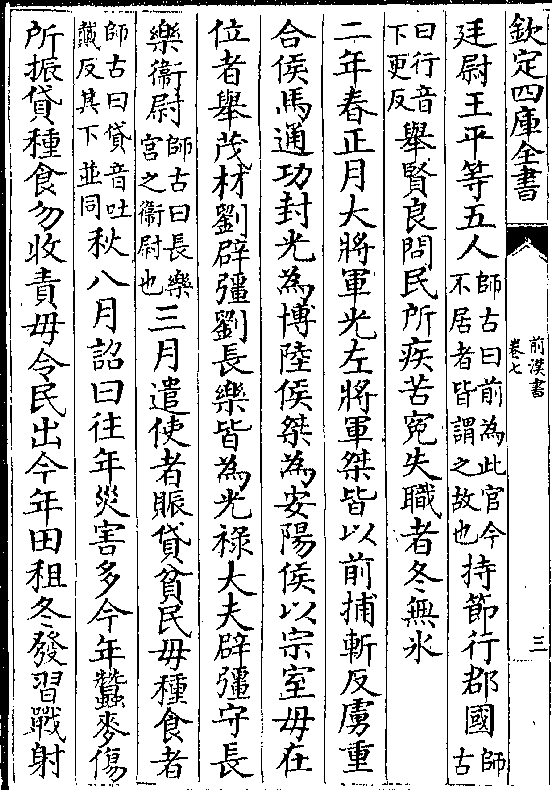 欽定四庫全書
前漢書
卷七
三
廷尉王平等五人師古曰前為此官今不居者皆謂之故也持節行郡國師古
曰行音下更反舉賢良問民所疾苦寃失職者冬無氷
二年春正月大將軍光左將軍桀皆以前捕斬反虜重
合侯馬通功封光為博陸侯桀為安陽侯以宗室毋在
位者舉茂材劉辟彊劉長樂皆為光祿大夫辟彊守長
樂衞尉師古曰長樂宮之衞尉也三月遣使者賑貸貧民毋種食者
師古曰貸音吐戴反其下並同秋八月詔曰往年災害多今年蠶麥傷
所振貸種食勿收責毋令民出今年田租冬發習戰射